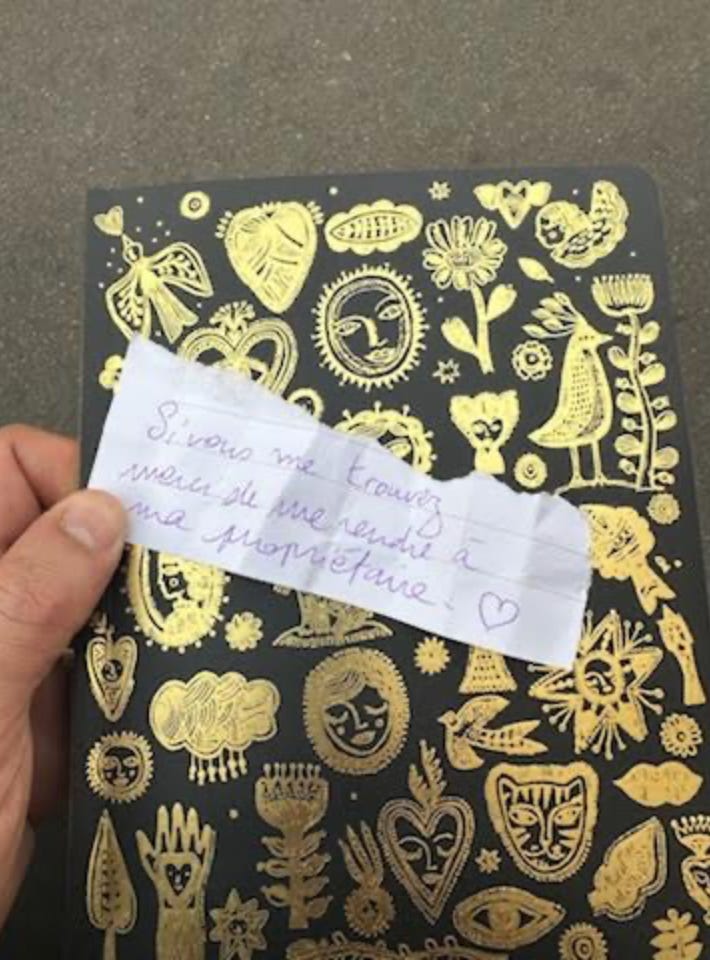 Si vous me trouvez
merci de me rendre à
ma propriétaire. ♡